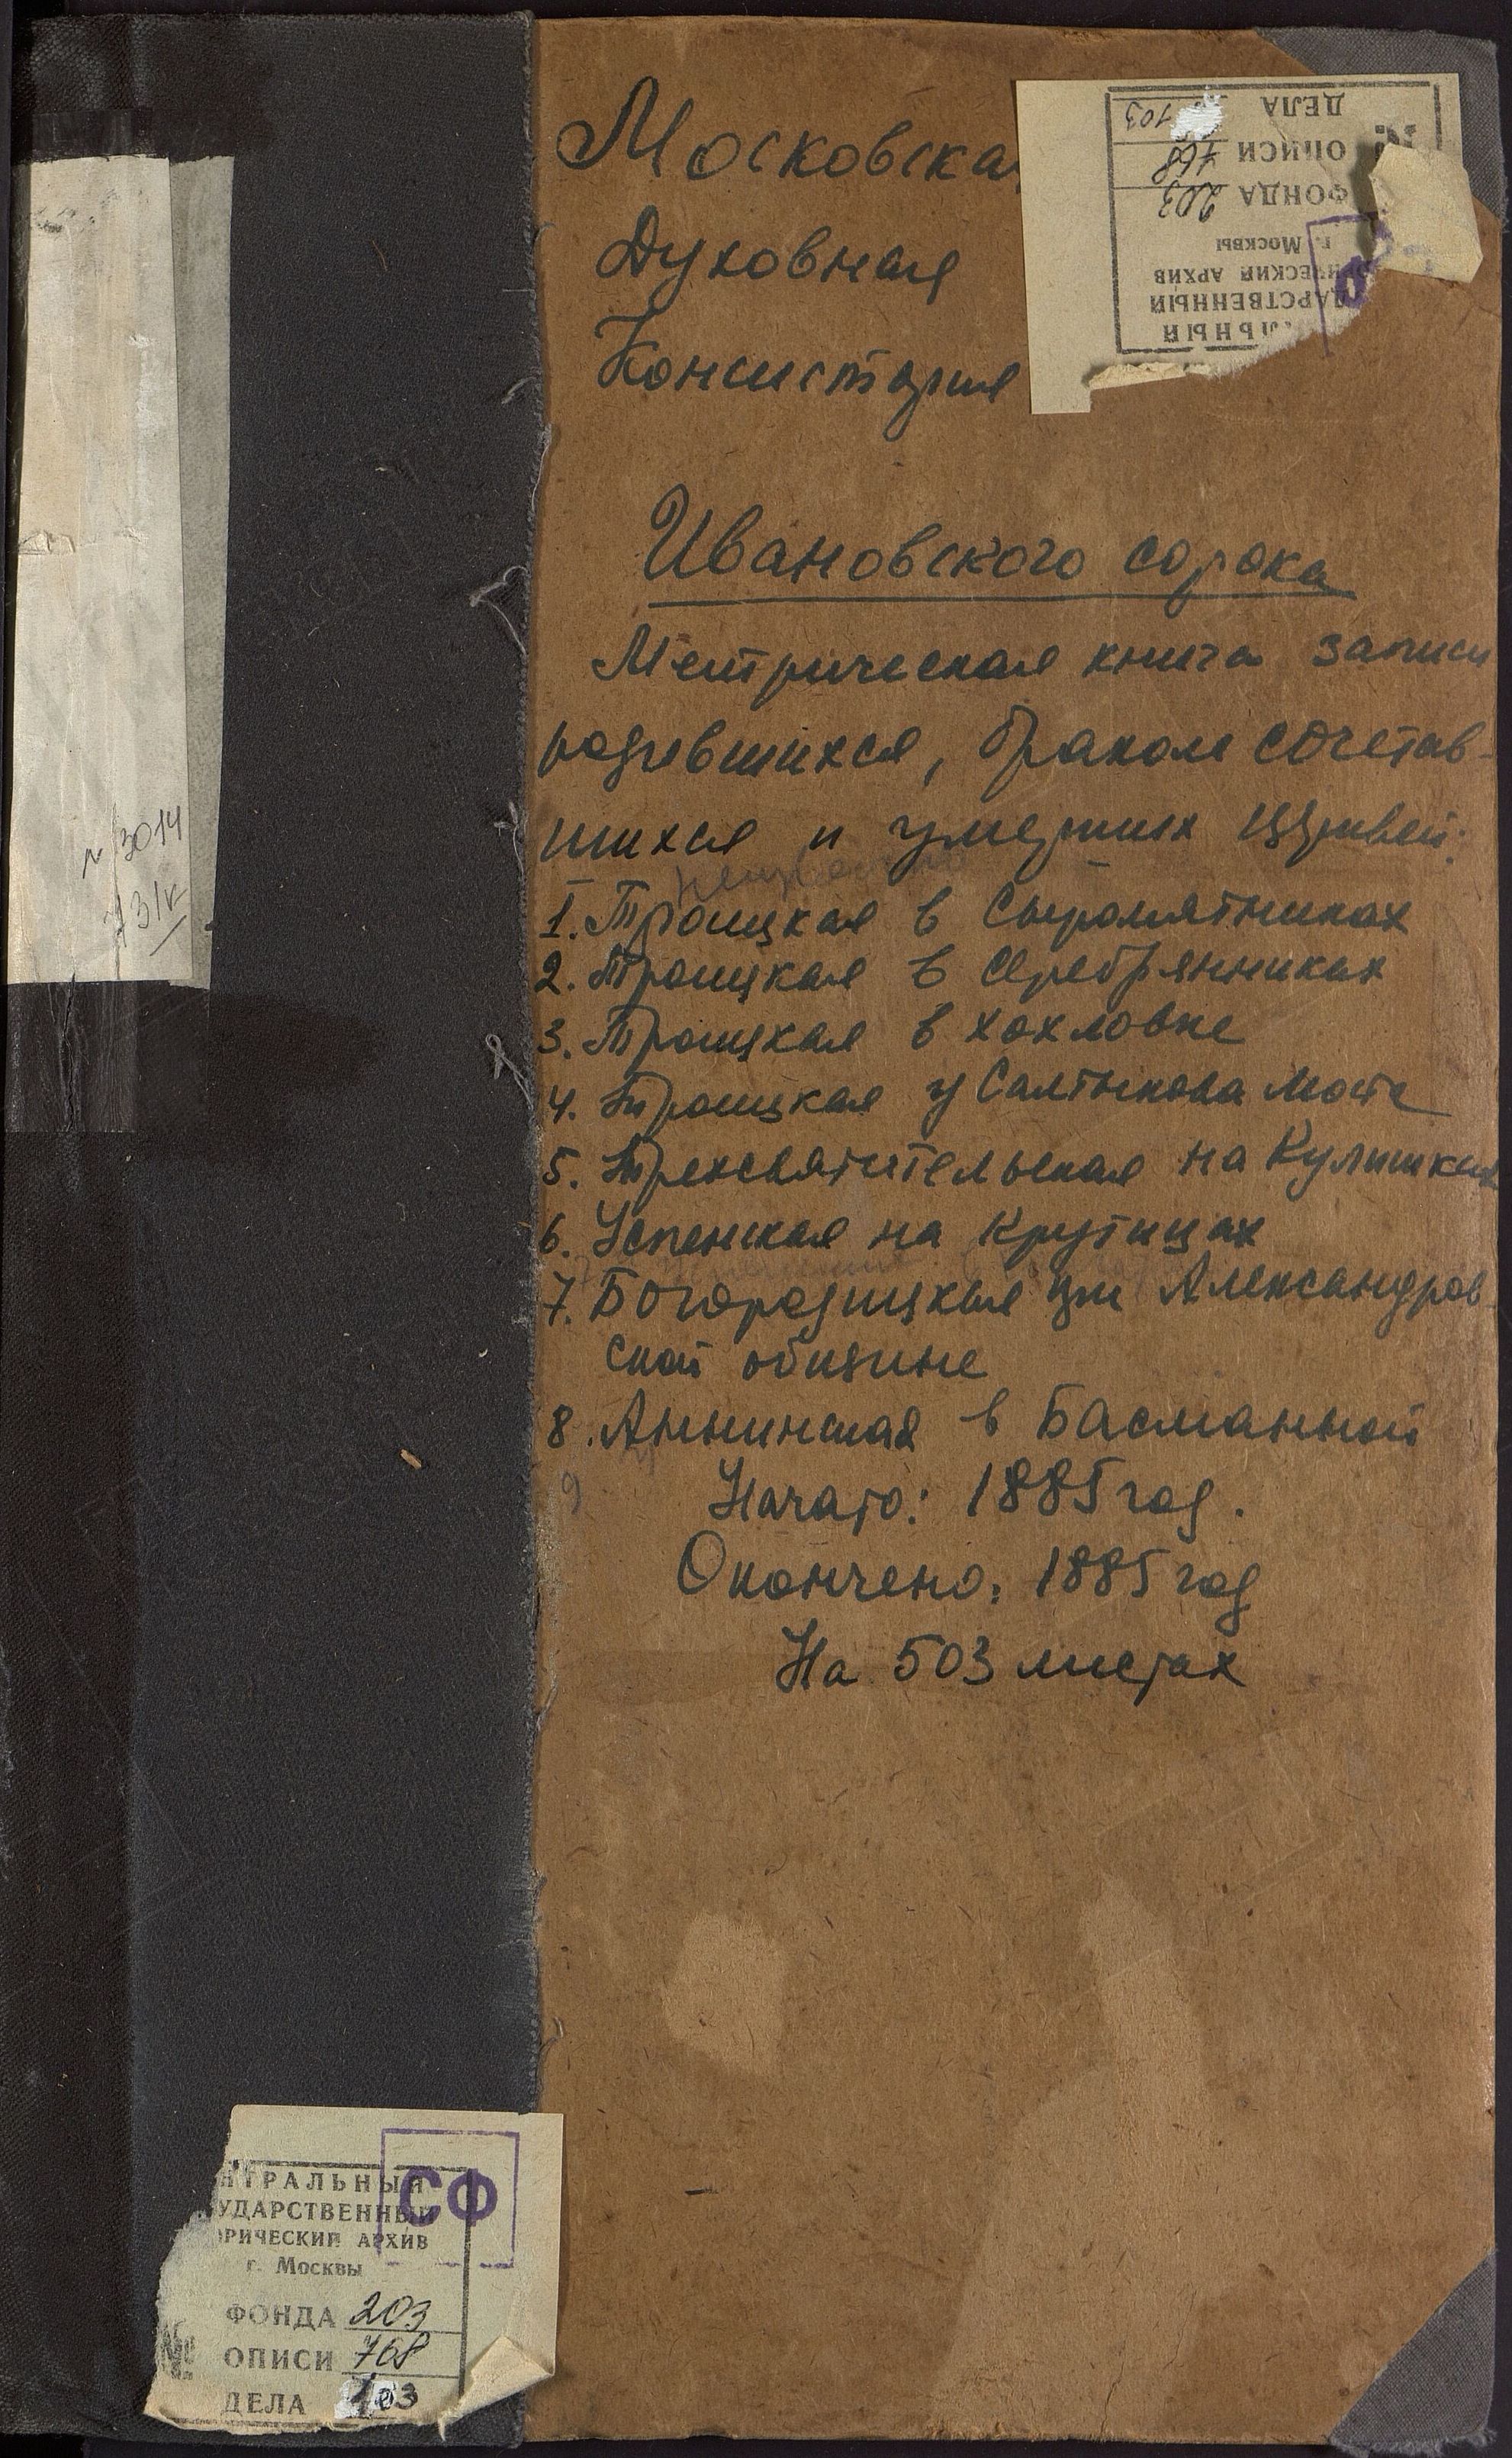 Московская
Духовная
Консистория
Ивановского сорока
Метрическая книга записи
родившихся, браком сочетав-
шихся и умерших церквей:
1. Троицкая в Сыромятниках
2. Троицкая в Серебрянниках
3. Троицкая в Хохловке
4. Троицкая у Салтыкова моста
5. Трехсвятительская на Кулишках
6. Успенская на Крутицах
7. Богородицкая при Александров-
ской общине
8. Аннинская в Басманной
9
Начато: 1885 год.
Окончено: 1885 год
На 503 листах
ЛЬНЫЙ
ДАРСТВЕННЫЙ
ИЧЕСКИЙ АРХИВ
г. Москвы
ФОНДА 203
№ ОПИСИ 768
ДЕЛА 103
№ 3014
СФ
НТРАЛЬНЫЙ
УДАРСТВЕННЫЙ
ОРИЧЕСКИЙ АРХИВ
г. Москвы
ФОНДА 203
№ ОПИСИ 768
ДЕЛА 103